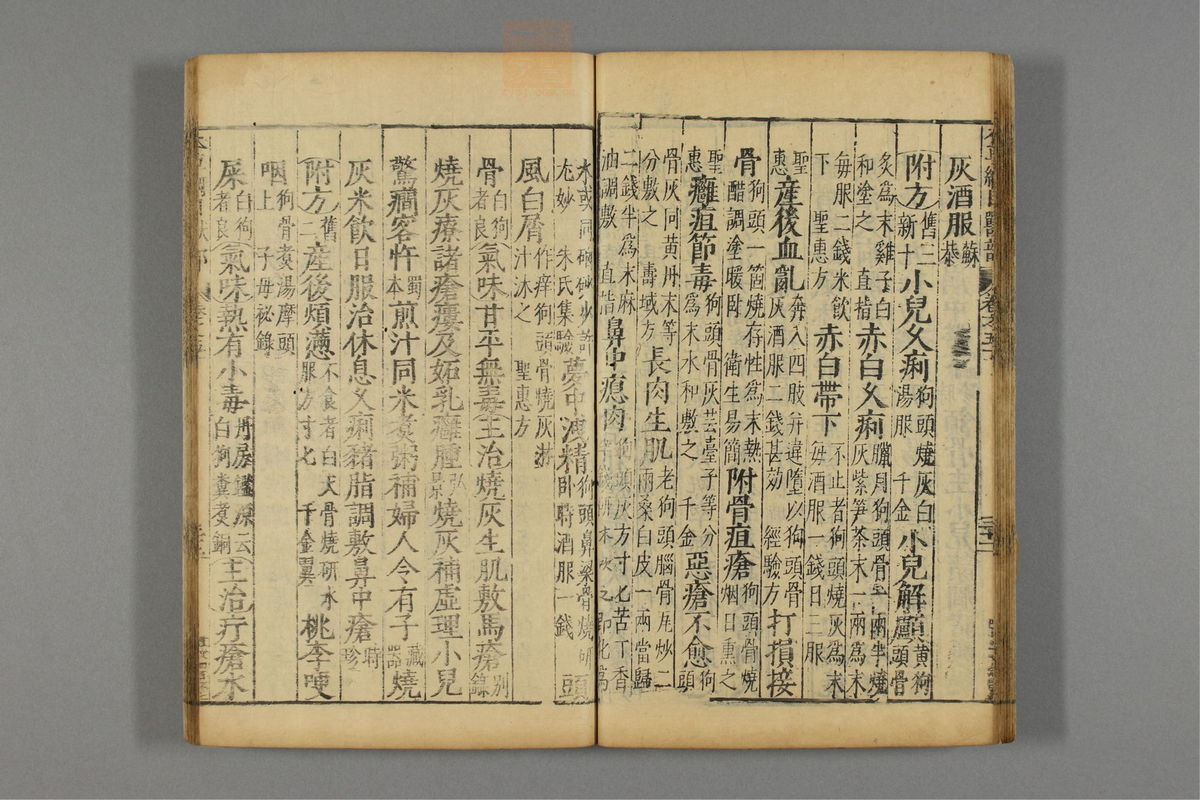 灰酒服蘇恭
附方舊三新十小兒久痢狗頭燒灰白湯服千金小兒解顱黃狗頭骨
炙為末雞子白和塗之直指赤白久痢臘月狗頭骨一兩半燒灰紫笋茶末一兩為末
每服二錢米飲下聖惠方赤白帶下不止者狗頭燒灰為末每酒服一錢日三服
聖惠產後血亂奔入四肢并違墮以狗頭骨灰酒服二錢甚効經驗方打損接
骨狗頭一箇燒存性為末熱醋調塗暖卧衛生易簡附骨疽瘡狗頭骨燒烟日熏之
聖惠癰疽節毒狗頭骨灰芸薹子等分為末水和敷之千金惡瘡不愈狗頭
骨灰同黃丹末等分敷之壽域方長肉生肌老狗頭腦骨瓦炒二兩桑白皮一兩當歸
二錢半為末麻油調敷直指鼻中瘜肉狗頭灰方寸匕苦丁香
夢中洩精狗頭鼻梁骨燒研卧時酒服一錢頭
風白屑作痒狗頭骨燒灰淋汁沐之聖惠方
骨白狗者良氣味甘平無毒主治燒灰生肌敷馬瘡別錄
燒灰療諸瘡瘻及妬乳癰腫弘景燒灰補虛理小兒
驚癇客忤蜀本煎汁同米煮粥補婦人令有子藏器燒
灰米飲日服治休息久痢豬脂調敷鼻中瘡時珍
附方舊二產後煩懣不食者白犬骨燒研水服方寸匕千金翼桃李哽
咽狗骨煮湯摩頭上子母祕錄
屎白狗者良氣味熱有小毒丹房鑑源云白狗糞煮銅主治疔瘡水